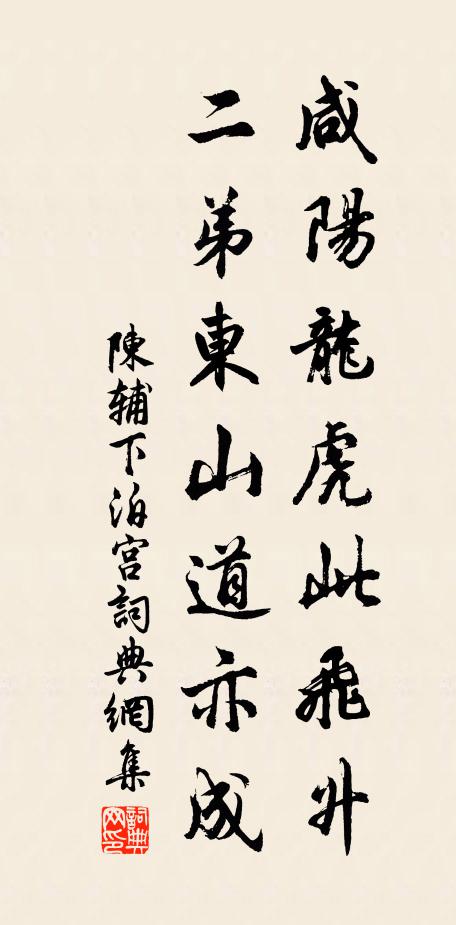 咸陽龍虎此飛升
二弟東山道亦成
陳辅下泊宫詞典網集
詞典网印